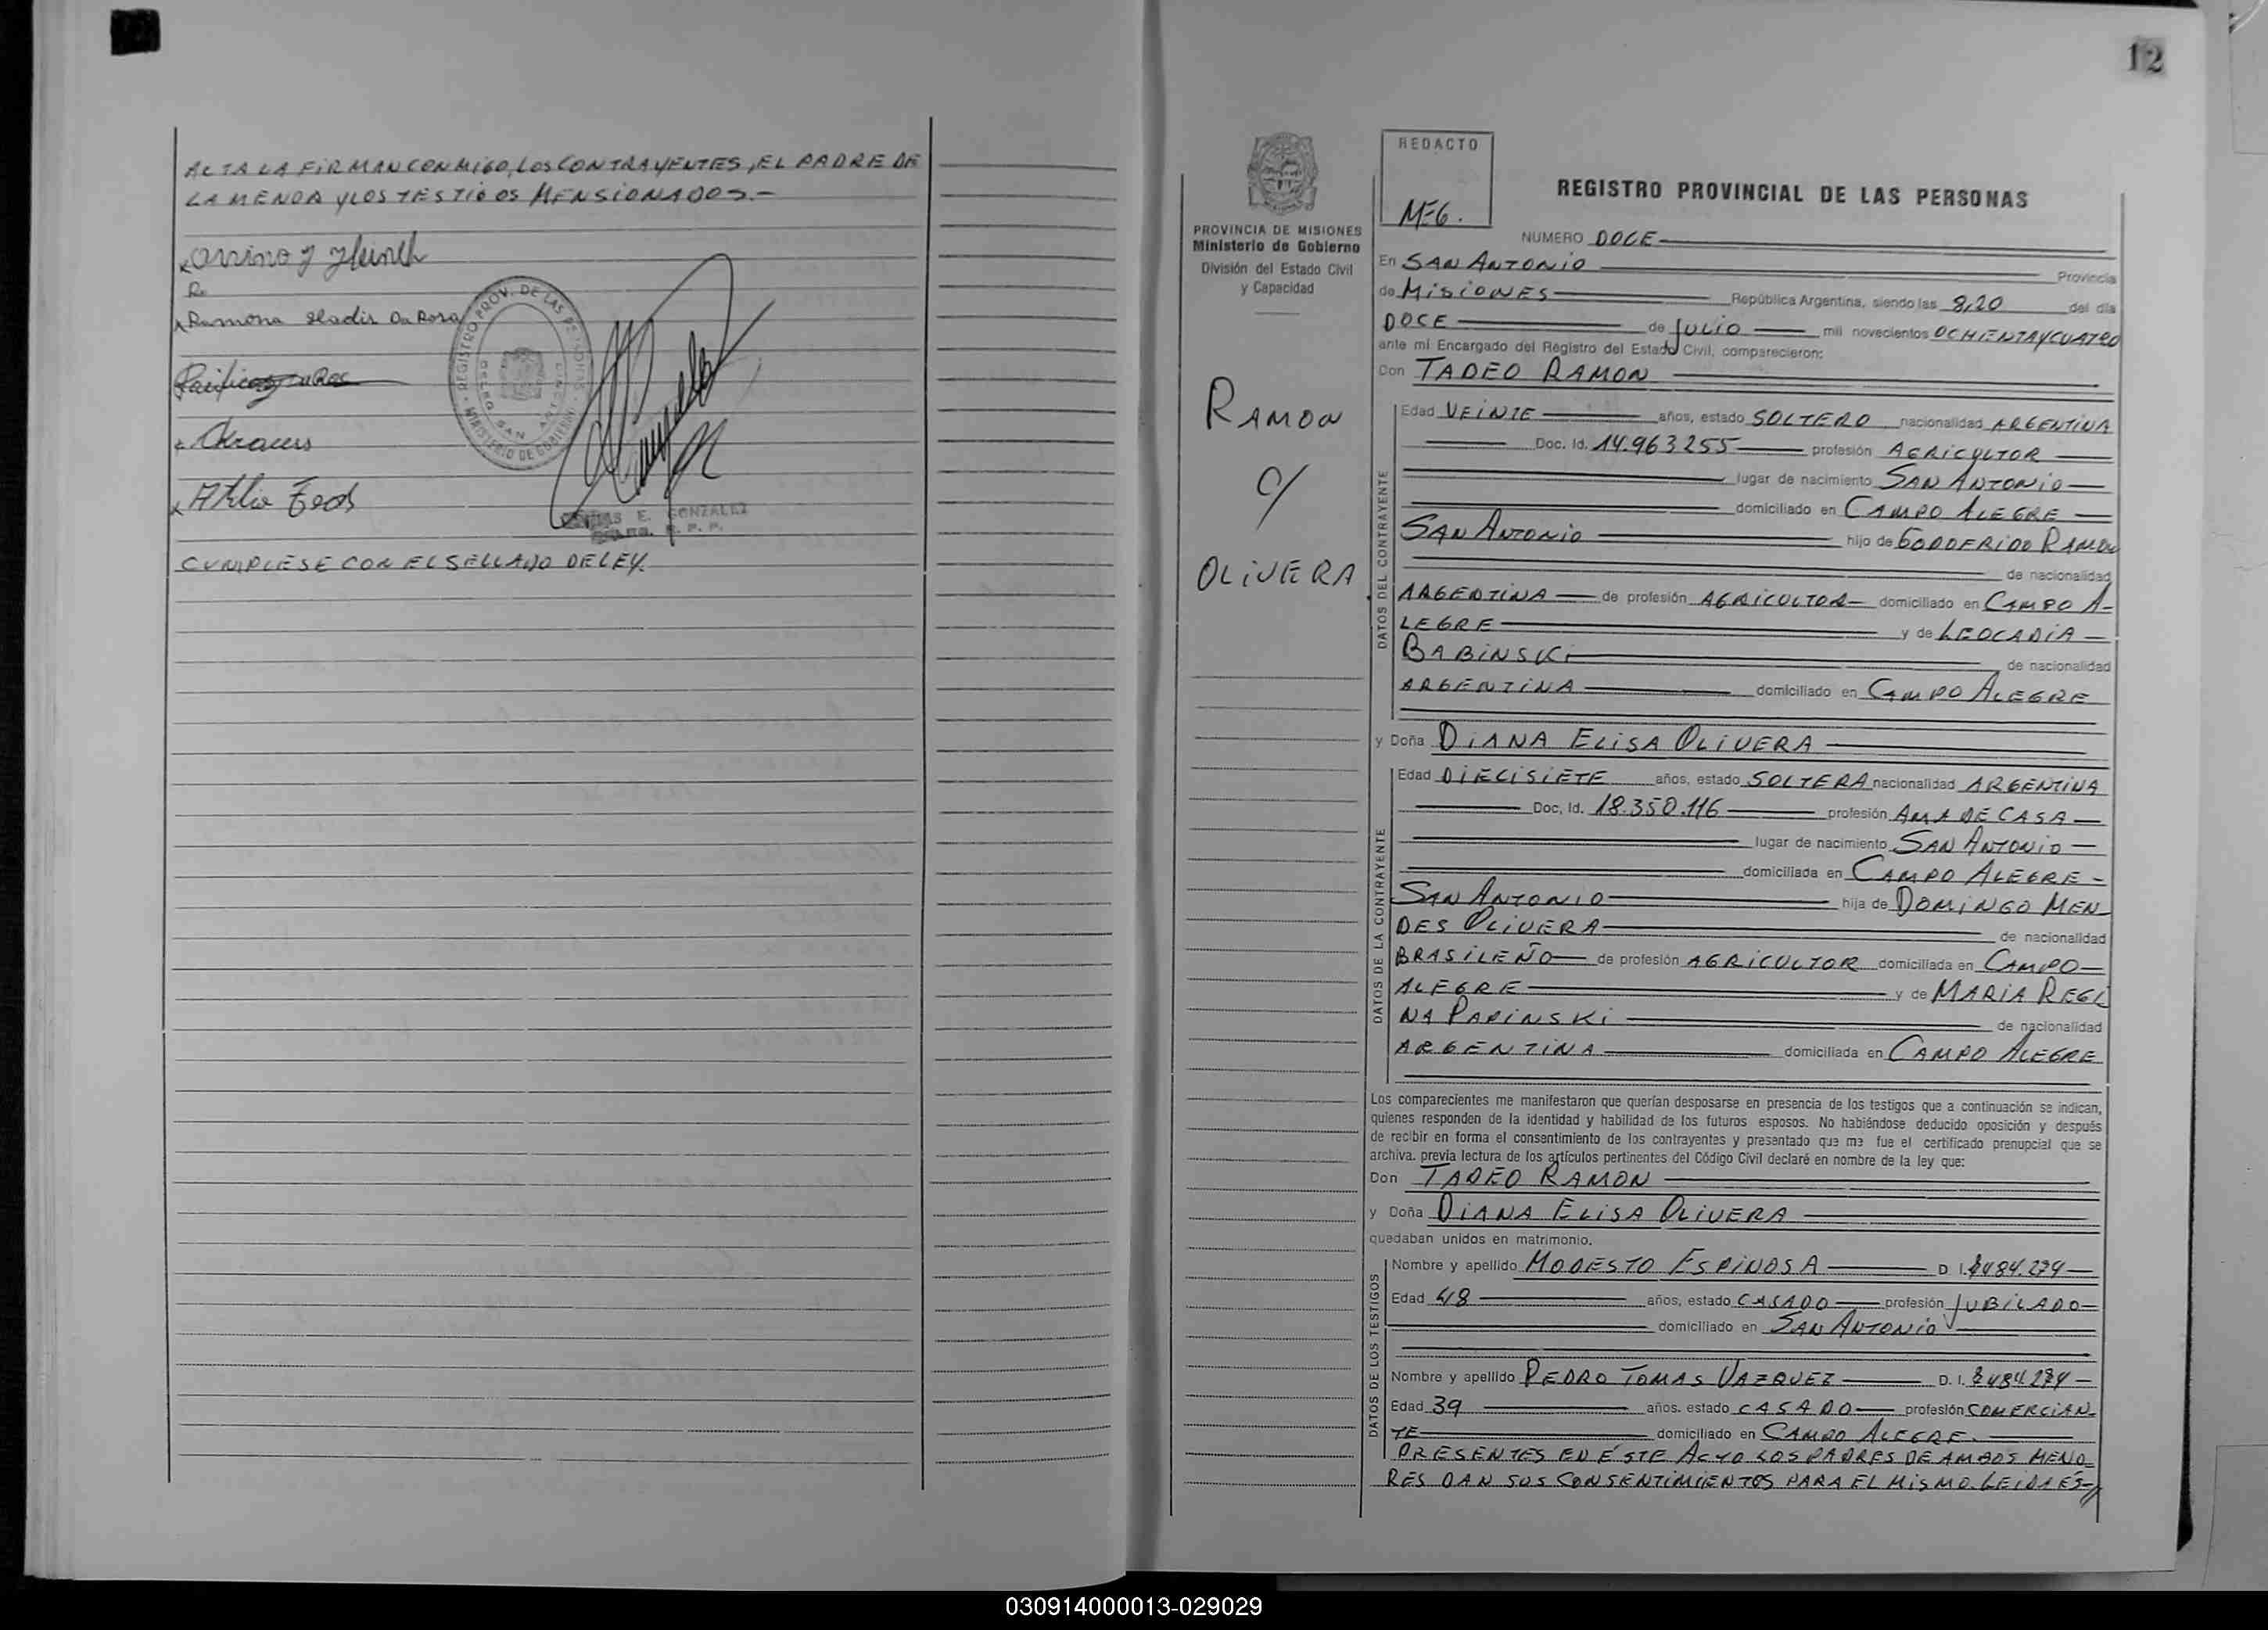 ACTA LA FIRMAN CONMIGO, LOS CONTRAYENTES, EL PADRE DE
LA MENOR Y LOS TESTIGOS MENSIONADOS.-
Ramona Gladis Da Rosa
Krauss
REGISTRO PROV. DE LAS PERSONAS
SAN ANTONIO
MINISTERIO DE GOBIERNO
E. GONZALEZ
R. P. P.
CUMPLESE CON EL SELLADO DE LEY.
12
PROVINCIA DE MISIONES
Ministerio de Gobierno
División del Estado Civil
y Capacidad
RAMON
c/
OLIVERA
REDACTO
M-G.
REGISTRO PROVINCIAL DE LAS PERSONAS
NUMERO DOCE
En SAN ANTONIO Provincia
de MISIONES República Argentina, siendo las 8,20 del día
DOCE de JULIO mil novecientos OCHENTA Y CUATRO
ante mí Encargado del Registro del Estado Civil, comparecieron:
Don TADEO RAMON
DATOS DEL CONTRAYENTE
Edad VEINTE años, estado SOLTERO nacionalidad ARGENTINA
Doc. Id. 14.963255 profesión AGRICULTOR
lugar de nacimiento SAN ANTONIO
domiciliado en CAMPO ALEGRE
SAN ANTONIO hijo de GODOFRIDO RAMON
de nacionalidad
ARGENTINA de profesión AGRICULTOR domiciliado en CAMPO A-
LEGRE y de LEOCADIA
BABINSKI de nacionalidad
ARGENTINA domiciliado en CAMPO ALEGRE
y Doña DIANA ELISA OLIVERA
DATOS DE LA CONTRAYENTE
Edad DIECISIETE años, estado SOLTERA nacionalidad ARGENTINA
Doc. Id. 18.350.116 profesión AMA DE CASA
lugar de nacimiento SAN ANTONIO
domiciliada en CAMPO ALEGRE
SAN ANTONIO hija de DOMINGO MEN
DES OLIVERA de nacionalidad
BRASILEÑO de profesión AGRICULTOR domiciliada en CAMPO
ALEGRE y de MARIA REGI
NA PAPINSKI de nacionalidad
ARGENTINA domiciliada en CAMPO ALEGRE
Los comparecientes me manifestaron que querían desposarse en presencia de los testigos que a continuación se indican,
quienes responden de la identidad y habilidad de los futuros esposos. No habiéndose deducido oposición y después
de recibir en forma el consentimiento de los contrayentes y presentado que me fue el certificado prenupcial que se
archiva. previa lectura de los artículos pertinentes del Código Civil declaré en nombre de la ley que:
Don TADEO RAMON
y Doña DIANA ELISA OLIVERA
quedaban unidos en matrimonio.
DATOS DE LOS TESTIGOS
Nombre y apellido MODESTO ESPINOSA D. I.
Edad 48 años, estado CASADO profesión JUBILADO
domiciliado en SAN ANTONIO
Nombre y apellido PEDRO TOMAS VAZQUEZ D. I.
Edad 39 años. estado CASADO profesión COMERCIAN
TE domiciliado en CAMPO ALEGRE.
PRESENTES EN ÉSTE ACTO LOS PADRES DE AMBOS MENO
RES DAN SUS CONSENTIMIENTOS PARA EL MISMO. LEIDA ÉS
030914000013-029029